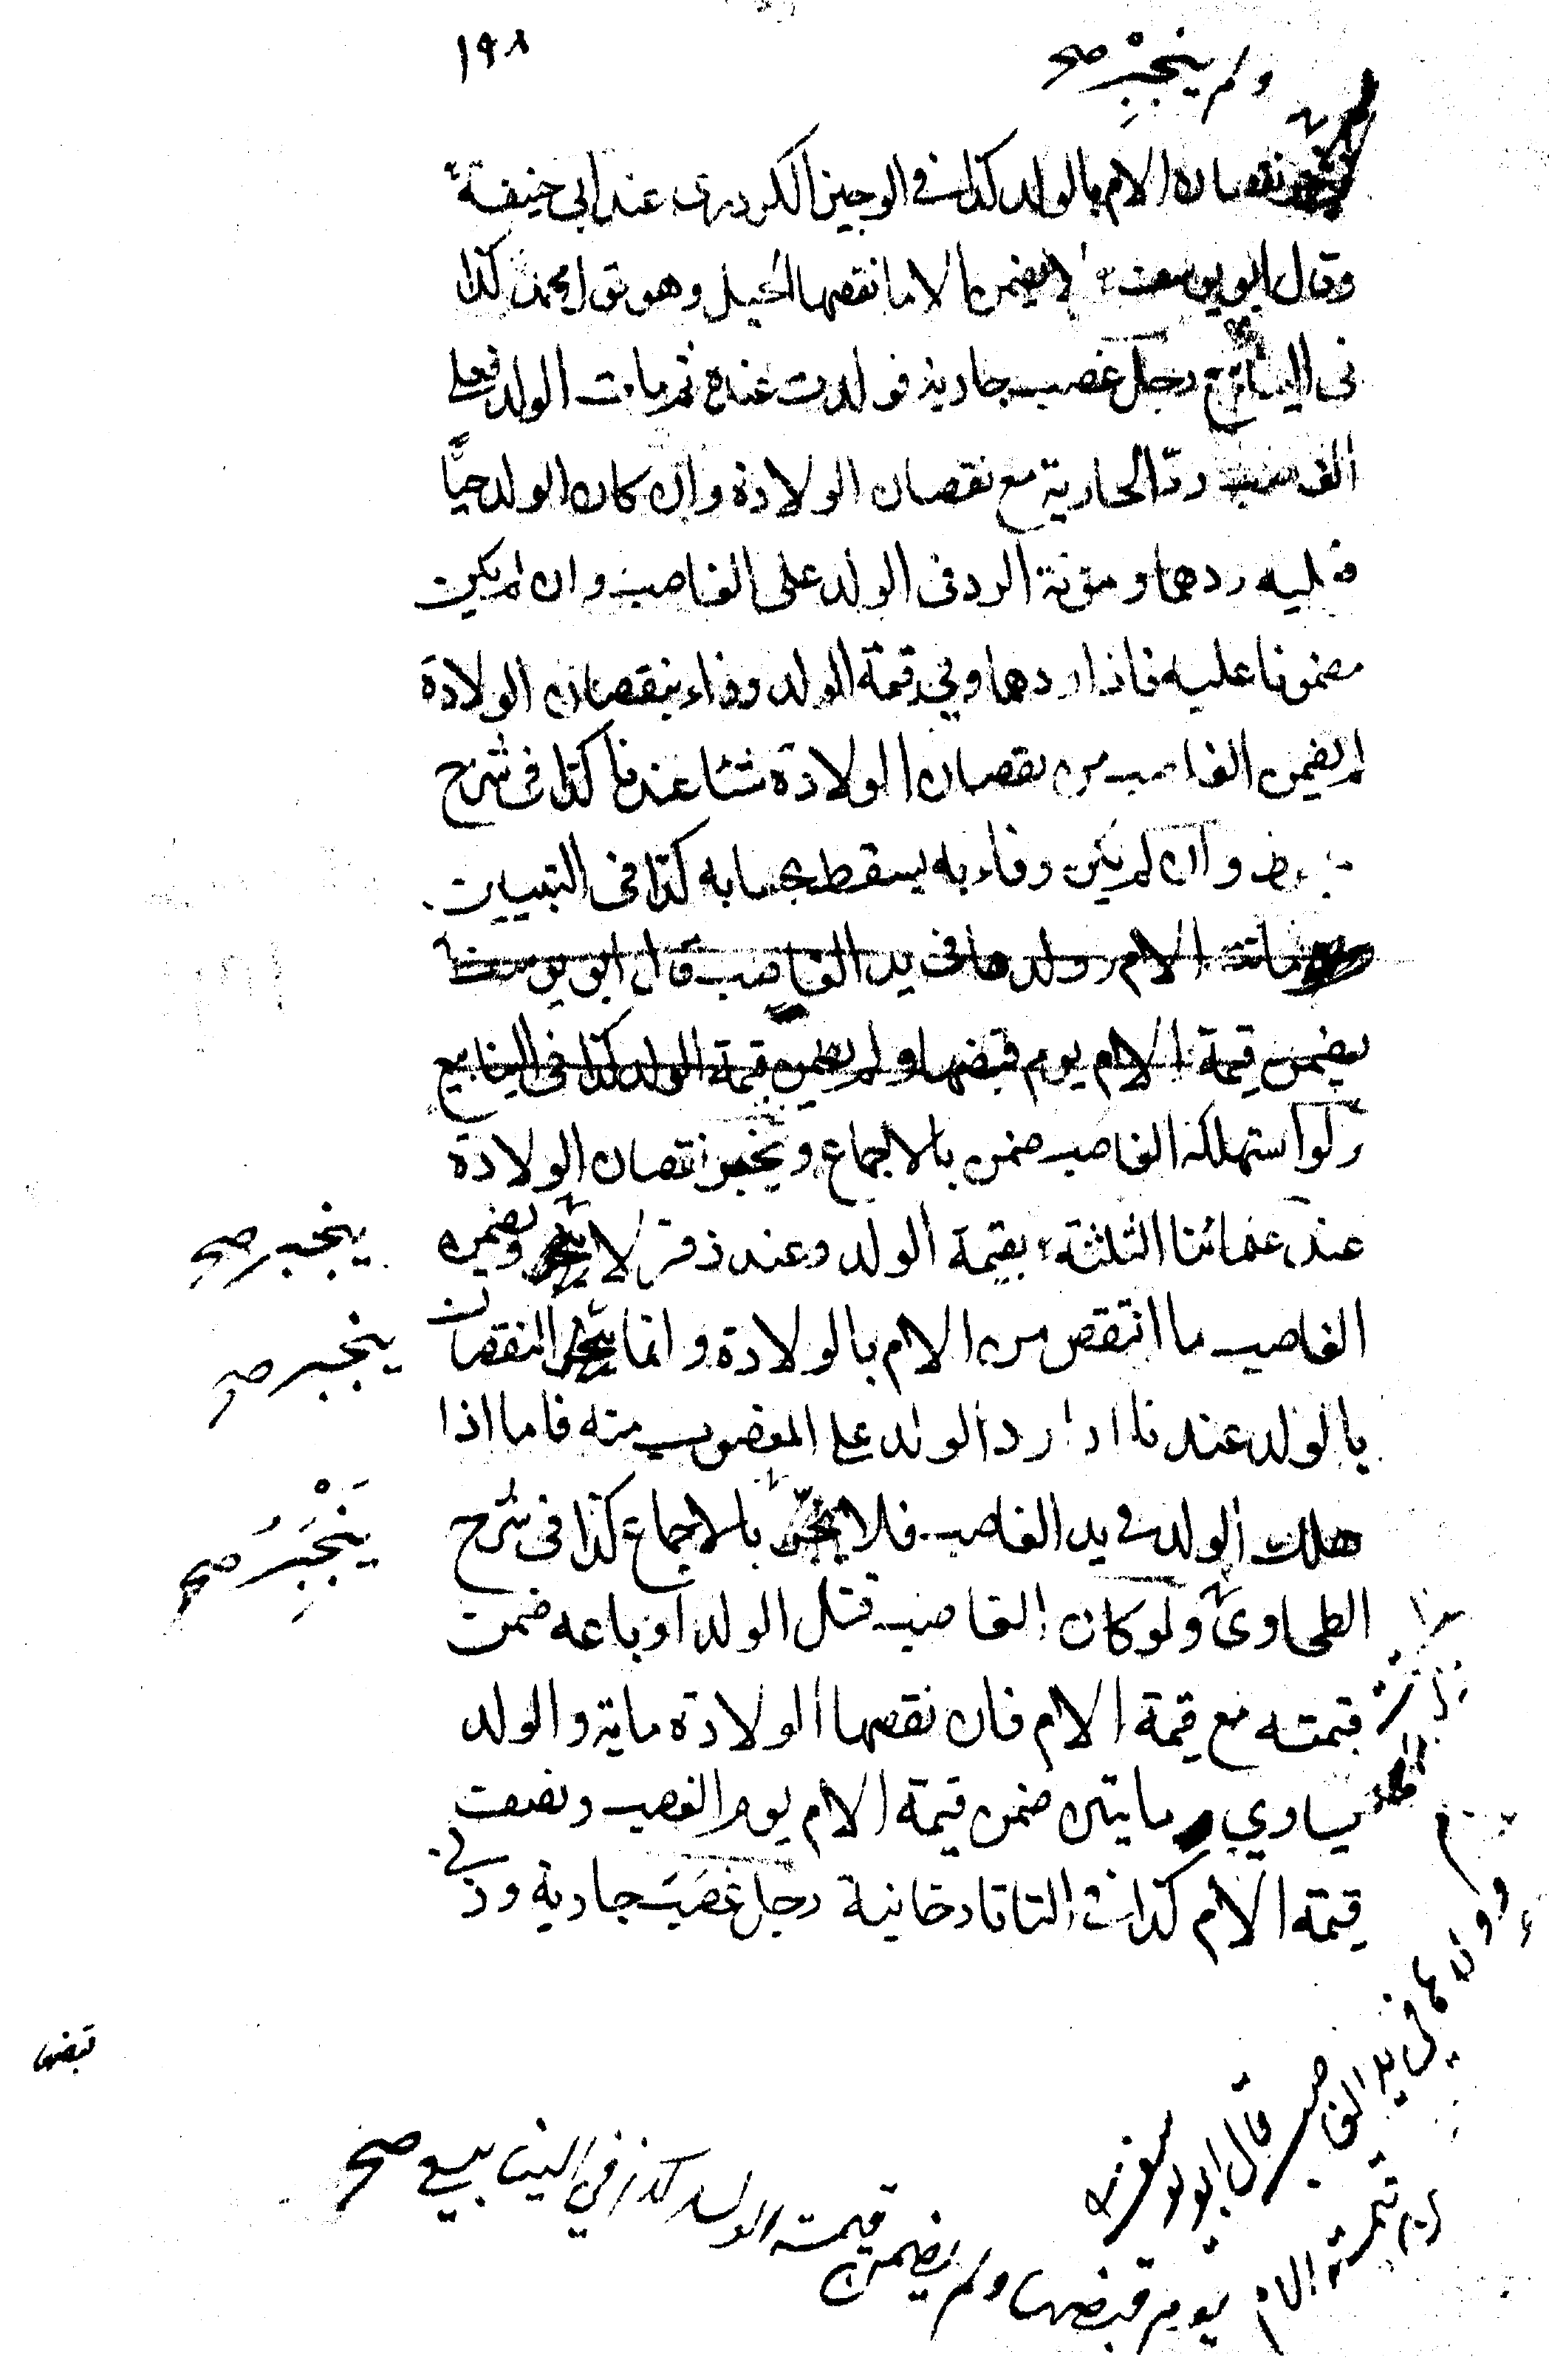 ١٩٨
ولم ينجبر صح
نقصان الام بالولد كذا في الوجيز الكردري عند ابي حنيفة
وقال ابو يوسف لا يضمن الا ما نقصها الحبل وهو قول محمد كذا
في الينابيع رجل غصب جارية فولدت عنده ثم مات الولد فعلى
الغاصب رد الجارية مع نقصان الولادة وان كان الولد حيًّا
فعليه ردهما ومؤنة الرد في الولد على الغاصب وان لم يكن
مضمونا عليه فاذا ردهما وفي قيمة الولد وفاء بنقصان الولادة
لم يضمن الغاصب من نقصان الولادة شئا عندنا كذا في شرح
وان لم يكن وفاء به يسقط بحسابه كذا في التبيين
ماتت الام وولدها في يد الغاصب قال ابو يوسف
يضمن قيمة الام يوم قبضها ولم يضمن قيمة الولد كذا في الينابيع
ولو استهلكه الغاصب ضمن بالاجماع ويخير نقصان الولادة
عند علمائنا الثلثة بقيمة الولد وعند زفر لا ويضمن
ينجبر صح
الغاصب ما انتقص من الام بالولادة وانما النقصان
ينجبر صح
بالولد عندنا اذا رد الولد على المغصوب منه فاما اذا
هلك الولد في يد الغاصب فلا بالاجماع كذا في شرح
يَنْجَبِرُ صح
الطحاوي ولو كان الغاصب قتل الولد او باعه ضمن
قيمته مع قيمة الام فان نقصها الولادة ماية والولد
يساوي مايتين ضمن قيمة الام يوم الغصب ونصف
قيمة الام كذا في التاتارخانية رجل غَصَبَ جارية وفي
وولدها في يد الغاصب قال ابو يوسف
قيمة الام يوم قبضها ولم يضمن قيمة الولد كذا في الينابيع صح
قبض